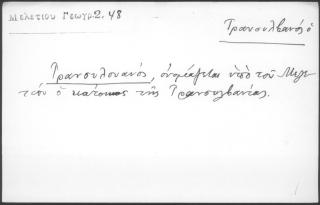 Μελετίου Γεωγρ. 2. 48
Τρανσυλβανός ὁ
Τρανσυλουανός, ὀνομάζεται ὑπὸ τοῦ Μελε
τίου ὁ κάτοικος τῆς Τρανσυλβανίας.